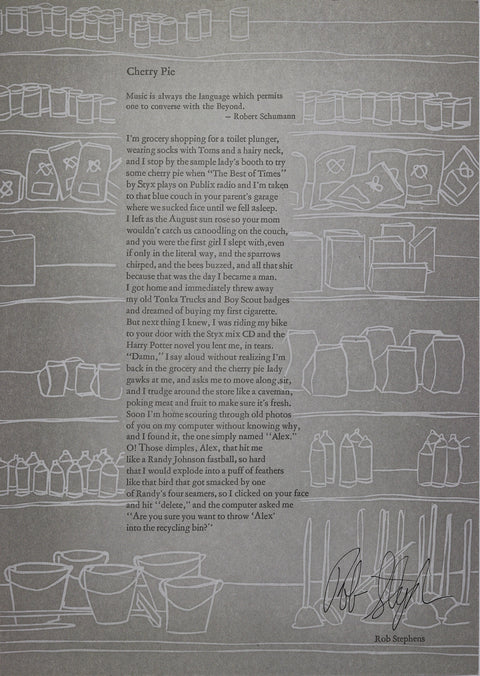 Cherry Pie
Music is always the language which permits
one to converse with the Beyond.
— Robert Schumann
I'm grocery shopping for a toilet plunger,
wearing socks with Toms and a hairy neck,
and I stop by the sample lady's booth to try
some cherry pie when "The Best of Times"
by Styx plays on Publix radio and I'm taken
to that blue couch in your parent's garage
where we sucked face until we fell asleep.
I left as the August sun rose so your mom
wouldn't catch us canoodling on the couch,
and you were the first girl I slept with, even
if only in the literal way, and the sparrows
chirped, and the bees buzzed, and all that shit
because that was the day I became a man.
I got home and immediately threw away
my old Tonka Trucks and Boy Scout badges
and dreamed of buying my first cigarette.
But next thing I knew, I was riding my bike
to your door with the Styx mix CD and the
Harry Potter novel you lent me, in tears.
"Damn," I say aloud without realizing I'm
back in the grocery and the cherry pie lady
gawks at me, and asks me to move along, sir,
and I trudge around the store like a caveman,
poking meat and fruit to make sure it's fresh.
Soon I'm home scouring through old photos
of you on my computer without knowing why,
and I found it, the one simply named "Alex."
O! Those dimples, Alex, that hit me
like a Randy Johnson fastball, so hard
that I would explode into a puff of feathers
like that bird that got smacked by one
of Randy's four seamers, so I clicked on your face
and hit "delete," and the computer asked me
"Are you sure you want to throw 'Alex'
into the recycling bin?"
Rob Steph
Rob Stephens